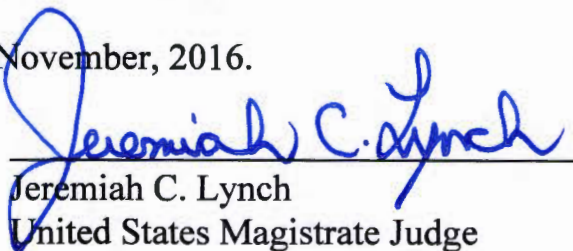 November, 2016.
Jeremiah C. Lynch
Jeremiah C. Lynch
United States Magistrate Judge